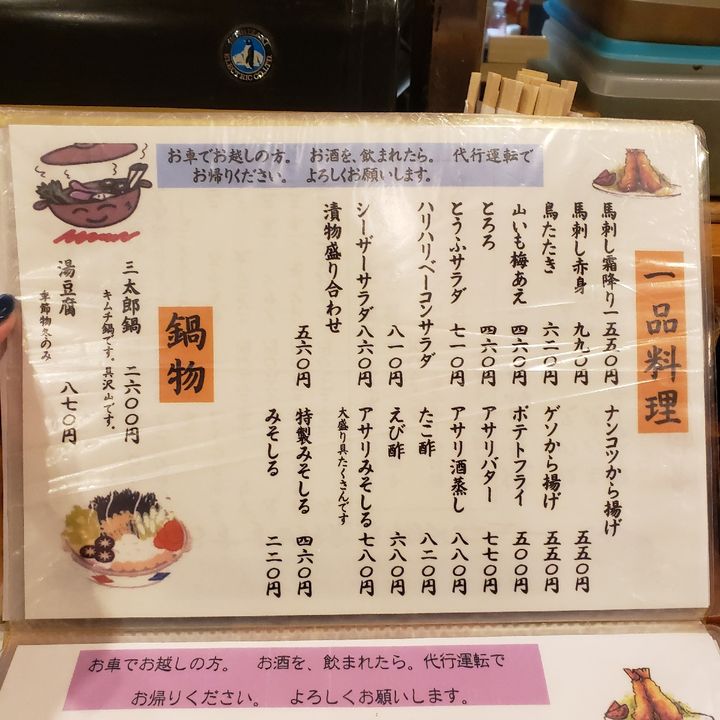 お車でお越しの方。 お酒を、飲まれたら。 代行運転で
お帰りください。 よろしくお願いします。
一品料理
馬刺し霜降り一五五〇円
馬刺し赤身 九九〇円
鳥たたき 六二〇円
山いも梅あえ 四六〇円
とろろ 四六〇円
とうふサラダ 七一〇円
ハリハリベーコンサラダ
八一〇円
シーザーサラダ八六〇円
漬物盛り合わせ
五六〇円
ナンコツから揚げ
五五〇円
ゲソから揚げ 五五〇円
ポテトフライ 五〇〇円
アサリバター 七七〇円
アサリ酒蒸し 八八〇円
たこ酢 八二〇円
えび酢 六八〇円
アサリみそしる 七八〇円
大盛り具たくさんです
特製みそしる 四六〇円
みそしる 二二〇円
鍋物
三太郎鍋 二六〇〇円
キムチ鍋です。具沢山です。
湯豆腐 八七〇円
季節物冬のみ
お車でお越しの方。 お酒を、飲まれたら。代行運転で
お帰りください。 よろしくお願いします。